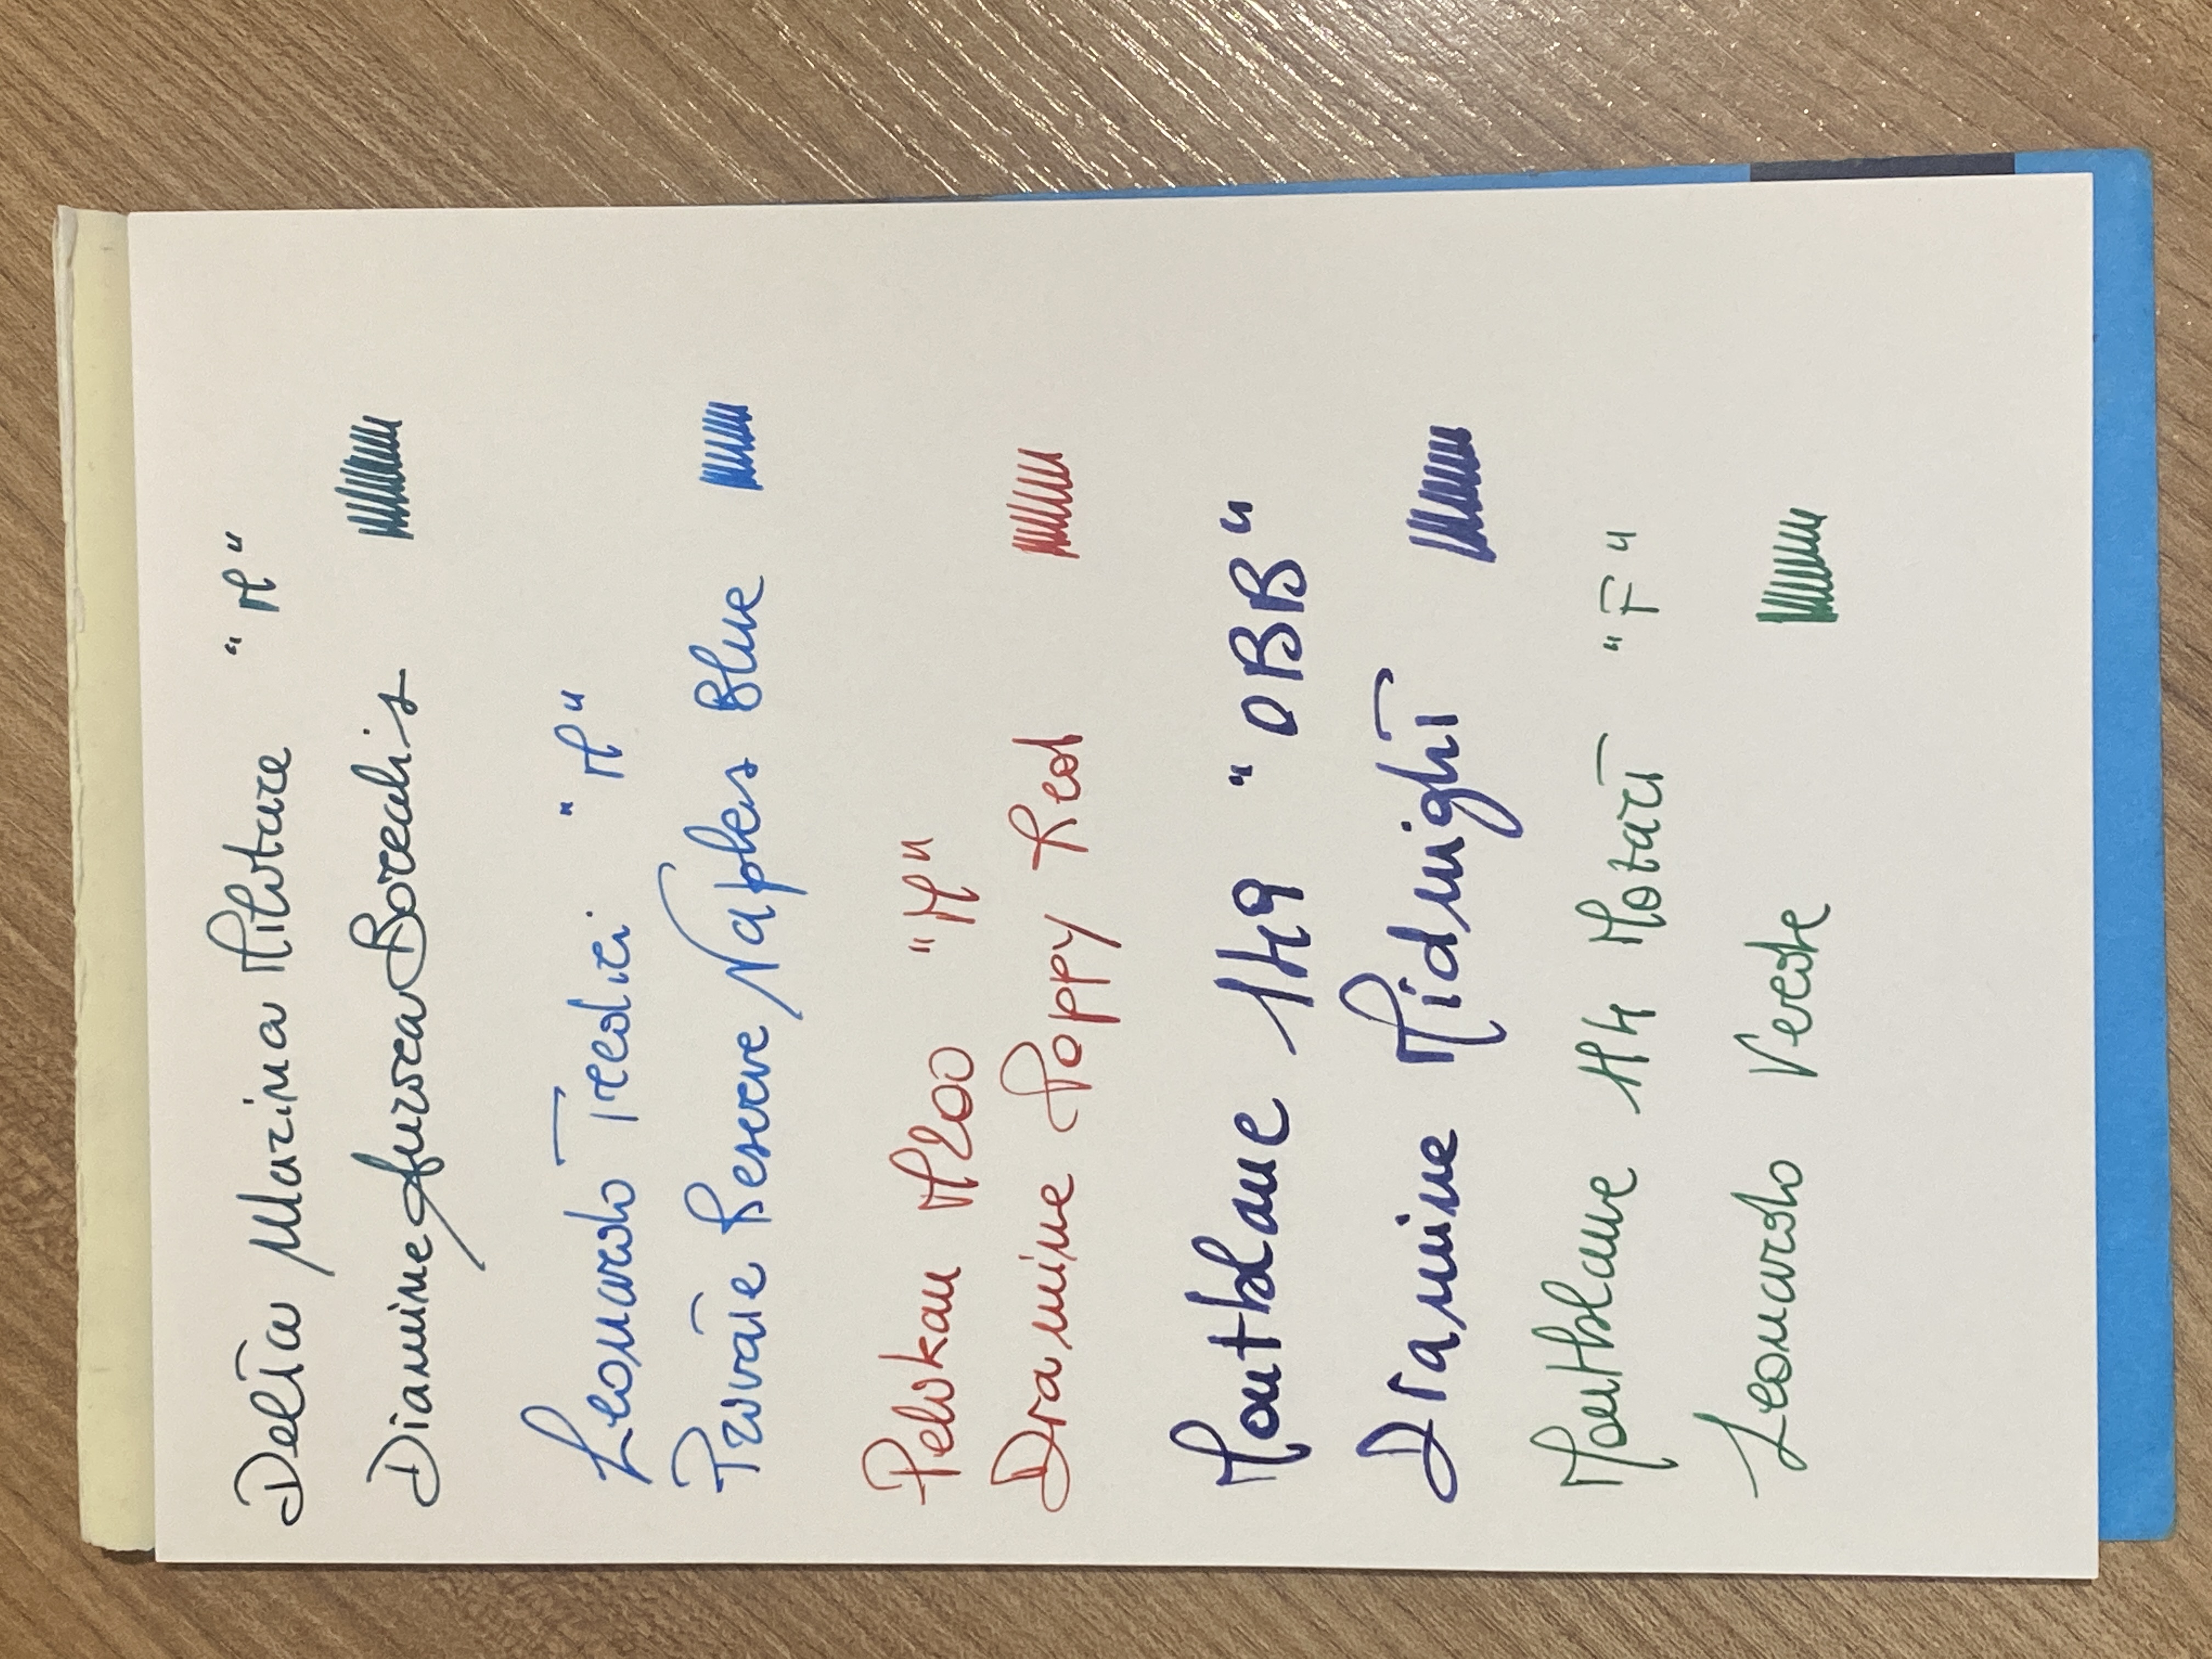 Delta Marina Militare "M"
Diamine Aurora Borealis
Leonardo Tredici "M"
Private Reserve Naples Blue
Pelikan M200 "M"
Diamine Poppy Red
Montblanc 149 "OBB"
Diamine Midnight
Montblanc 114 Mozart "F"
Leonardo Verde